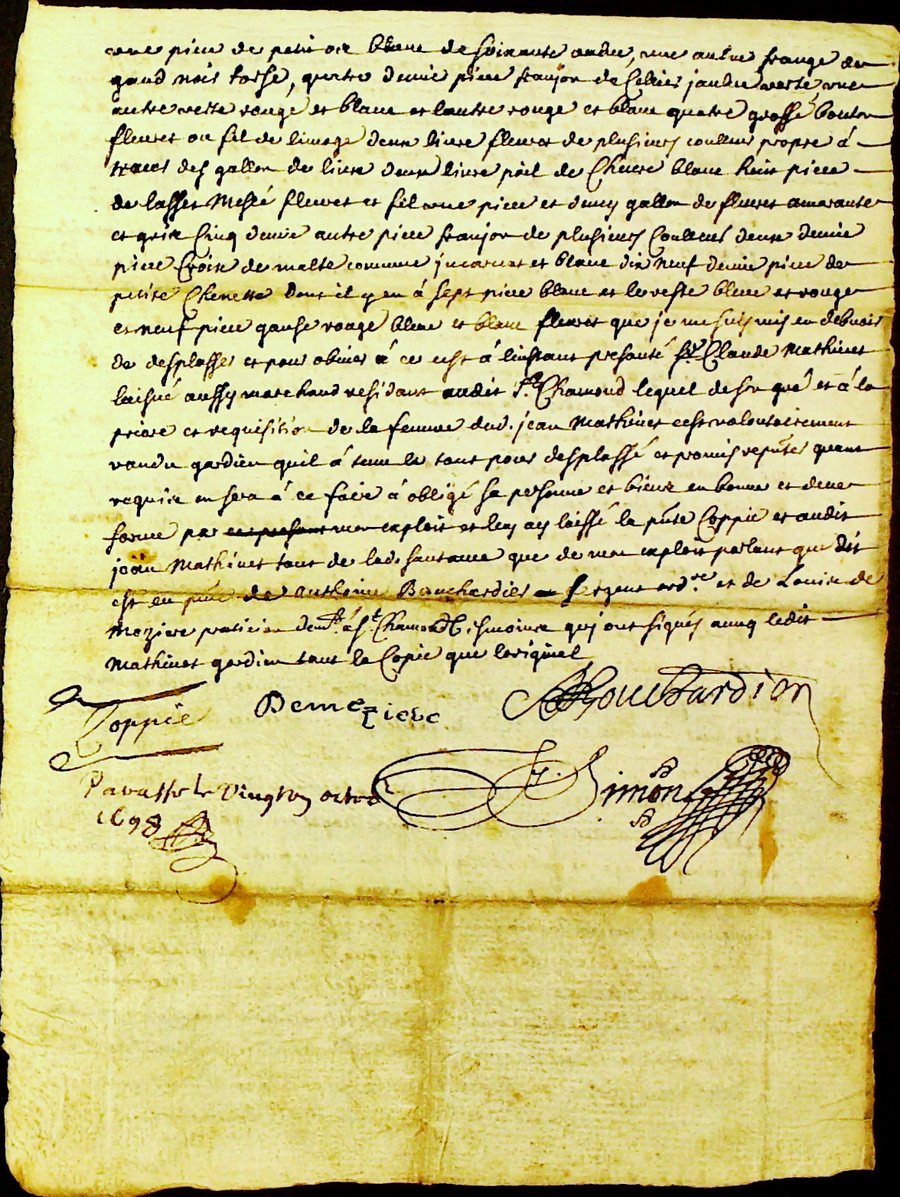 une piece de petit blanc de soixante aulne, une autre frange de
gand nois torse, quatre demie piece franjon de verte une
autre verte rouge et blanc et lautre rouge et blanc quatre grosse bouton
fleuret ou fil de limoge deux livre fleuret de plusieurs couleurs propre à
des gallon de livre deux livre poil de Chevre blanc huit piece
de lasset Meslé fleuret et fil une piece et demy gallon de fleuret amarante
et grix Cinq demie autre piece franjon de plusieurs Couleurs deux demie
piece Croix de malte comme jncarnat et blanc dix neuf demie piece de
petite Chenette dont il y en à sept piece blanc et le reste bleuc et rouge
et neuf piece ganse rouge bleuc et blanc fleuret que je me suis mis en debvoir
de desplasser et pour obvier à ce cest à linstant presanté Sr. Claude Mathinet
laisné aussy marchand residant audit St. Chamond lequel de son gré et à la
priere et requisition de la femme dud. jean Mathinet cest volontairement
randu gardien quil à tenu le tout pour desplassé et promis represter quant
requix en sera à ce faire à obligé sa personne et biens en bonne et deue
forme par ce present mon exploit et luy ay laissé la pnte Coppie et audit
jean Mathinet tant de lad. santance que de mon exploit parlant que dit
est en pnce de Anthoine Bouchardier Sergent ordre. et de Louis de
Moziere praticien demt. à St. Chamond tesmoins quj ont signés avecq ledit
Mathinet gardien tant la Copie que loriginal
Coppie
Demeziere
ABouchardion
J. Simon
Pavasse le Vingt octob
1698